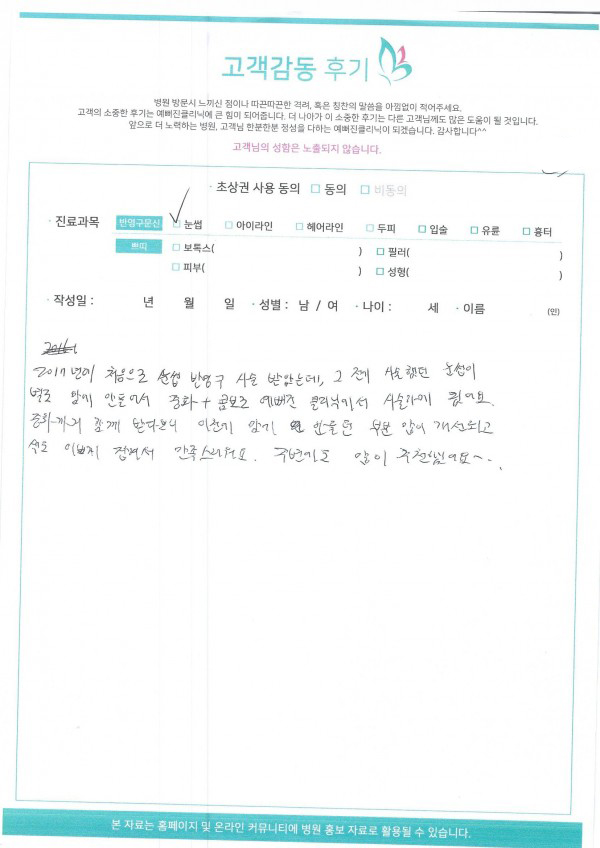 고객감동 후기
병원 방문시 느끼신 점이나 따끈따끈한 격려, 혹은 칭찬의 말씀을 아낌없이 적어주세요.
고객의 소중한 후기는 예뻐진클리닉에 큰 힘이 되어줍니다. 더 나아가 이 소중한 후기는 다른 고객님께도 많은 도움이 될 것입니다.
앞으로 더 노력하는 병원, 고객님 한분한분 정성을 다하는 예뻐진클리닉이 되겠습니다. 감사합니다^^
고객님의 성함은 노출되지 않습니다.
· 초상권 사용 동의 □ 동의 □ 비동의
· 진료과목 반영구문신 □ 눈썹 □ 아이라인 □ 헤어라인 □ 두피 □ 입술 □ 유륜 □ 흉터
쁘띠 □ 보톡스( ) □ 필러( )
□ 피부( ) □ 성형( )
· 작성일 : 년 월 일 · 성별 : 남 / 여 · 나이 : 세 · 이름 (인)
2016
2017년에 처음으로 눈썹 반영구 시술 받았는데, 그 전에 시술했던 눈썹이
별로 맘에 안들어서 중화 + 콤보로 예뻐진 클리닉에서 시술하게 됐어요.
중화까지 함께 받다보니 이전에 맘에 안들던 부분 많이 개선되고
색도 이쁘게 잡혀서 만족스러워요. 주변에도 많이 추천했어요~.
본 자료는 홈페이지 및 온라인 커뮤니티에 병원 홍보 자료로 활용될 수 있습니다.